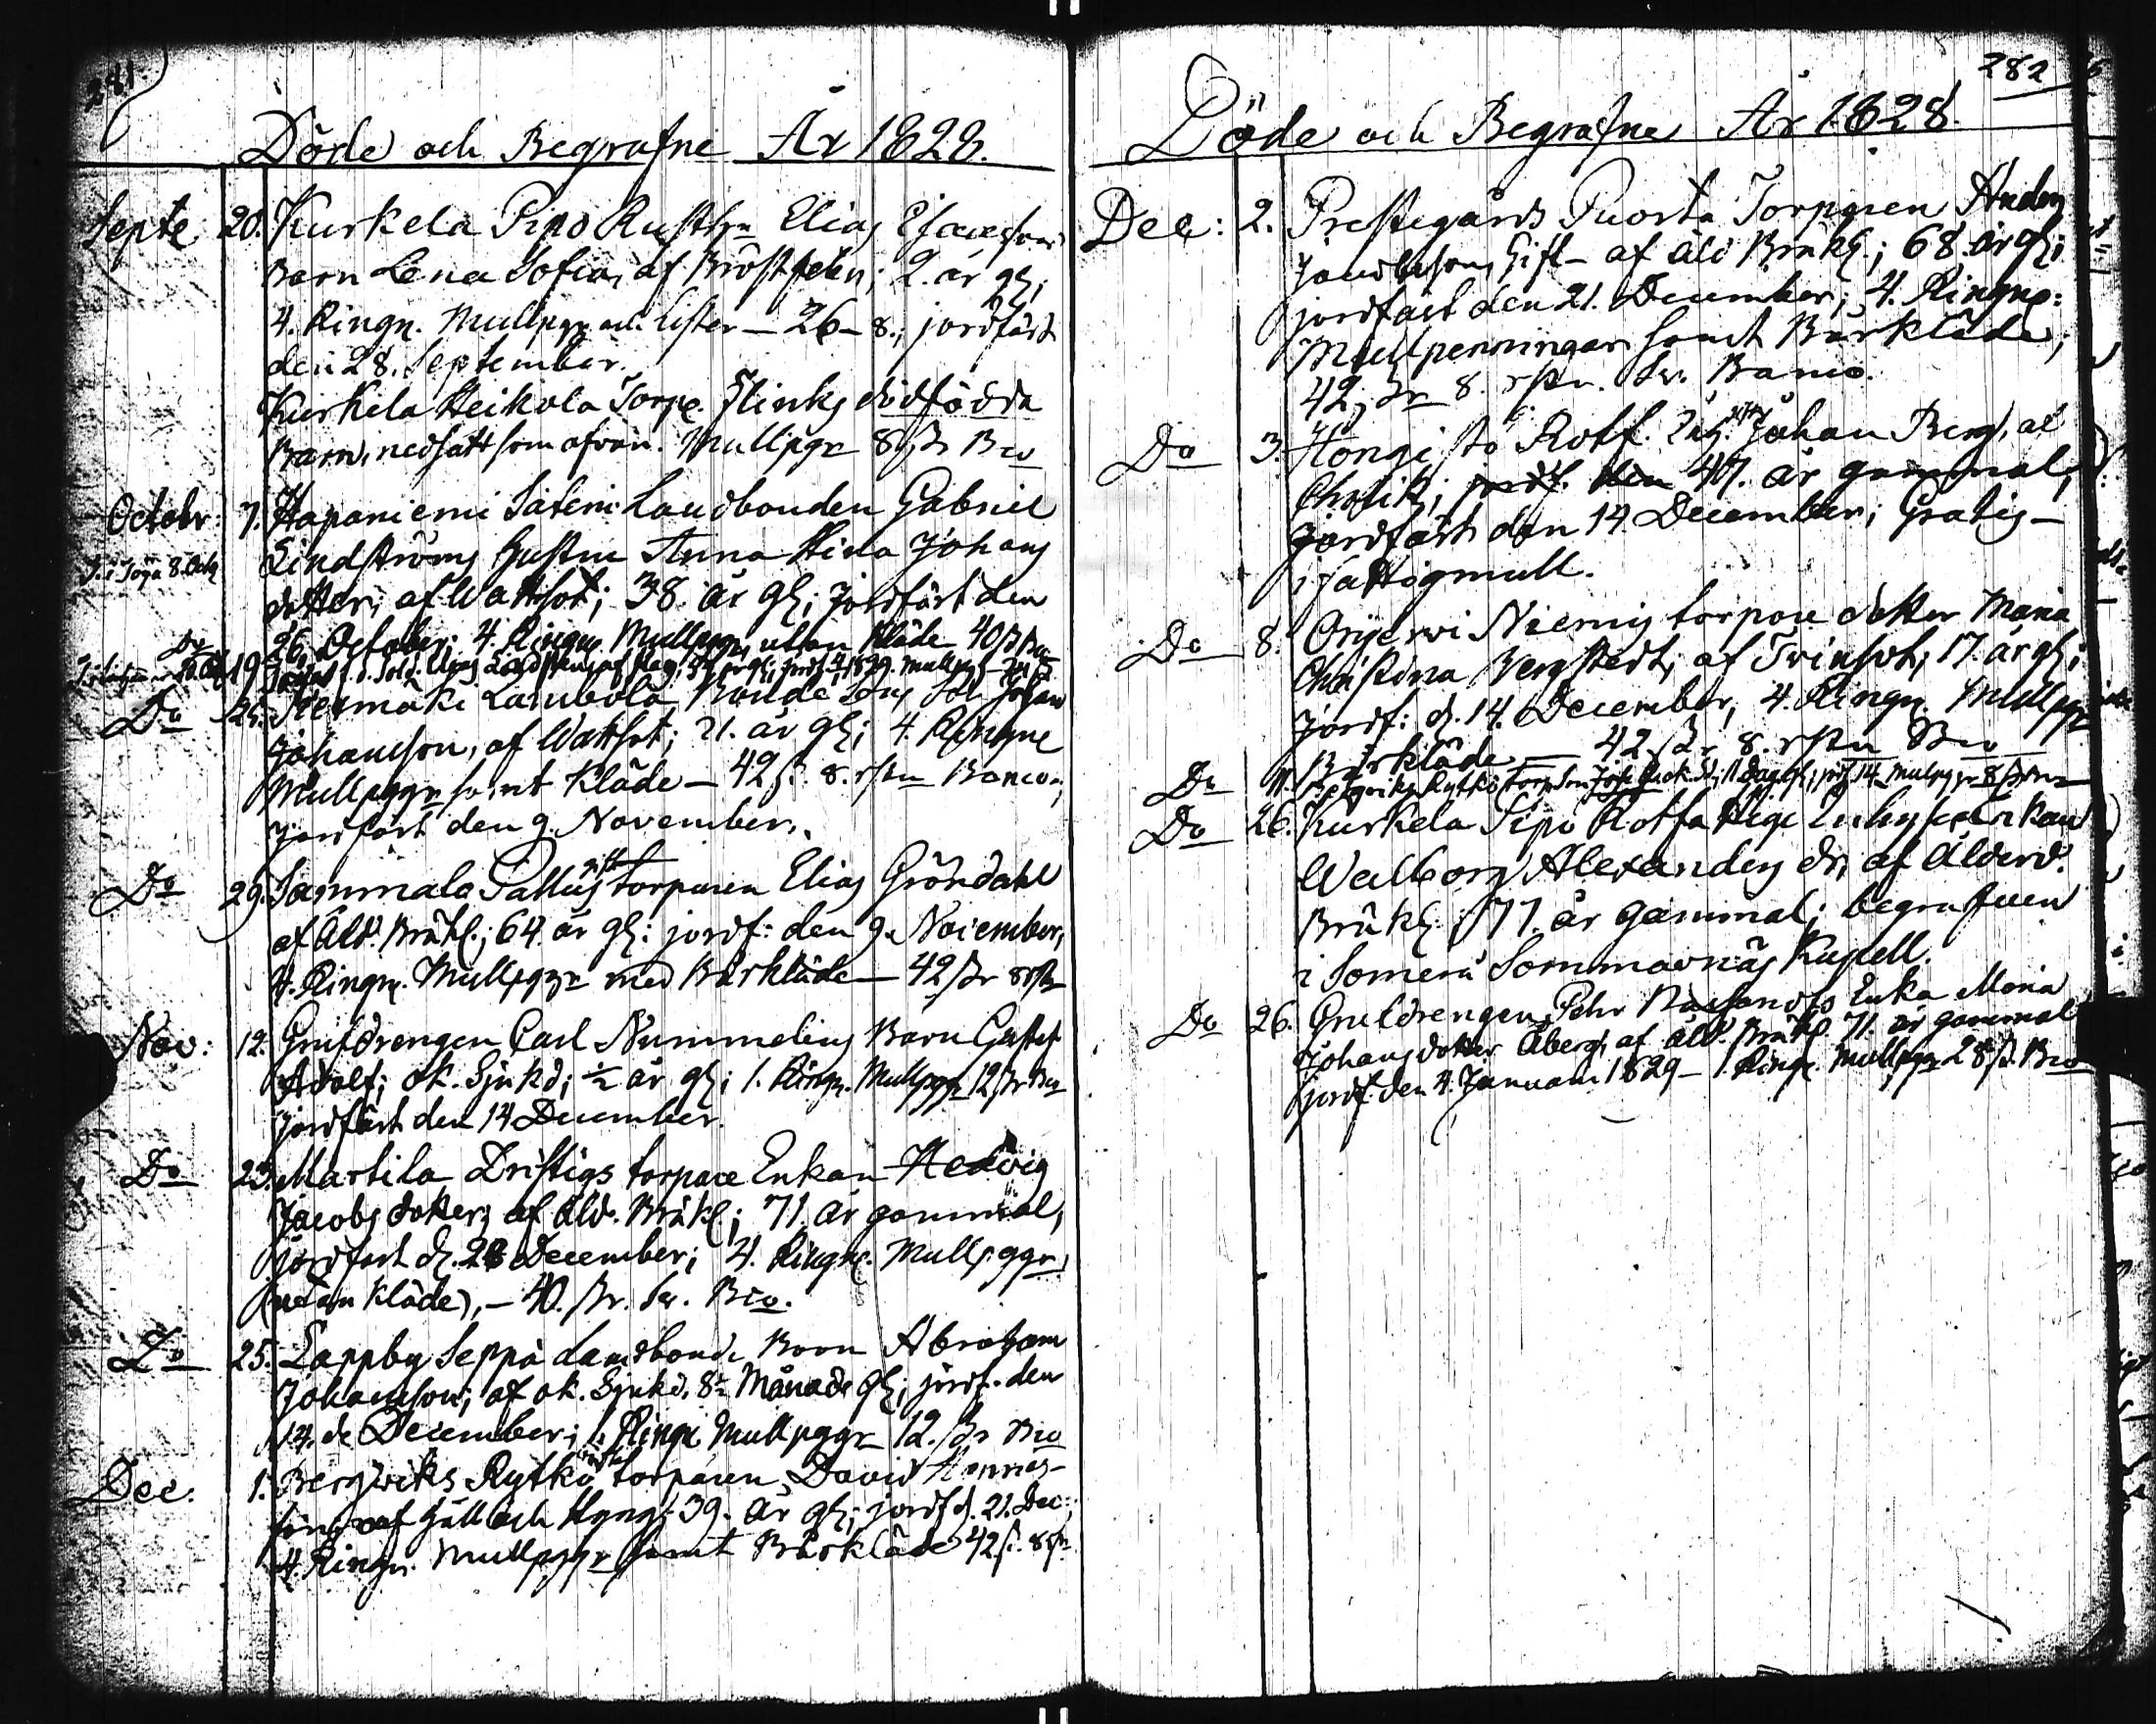 281
Döde och Begrafne År 1828.
Septe 20. Kurkela Pipo Rusth:n Elias Esaiæson
Barn Lena Sofia, af Bröstfeber; 2. år gl;
4. Ringn. Mullpgr och kister — 26 — 8.; jordfäst
den 28. September.
Kurkela Heikola Torp. Flinks dödfödda
Barn, nedsatt som ofvan. Mullpgr 8 ß Bco
Octobr: 7. Haponiemi Säteri Landbonden Gabriel
Lindströms Hustru Anna Stina Johans
dotter; af Wattsot; 38 år gl; jordfäst den
26. October; 4. Ringn. Mullpgr, utan kläde 40 ß Bco
19
Do 25. Lambola Bonde Son Johan
Johansson, af Wattsot; 21. år gl; 4. Ringne
Mullpggr samt Kläde — 42 ß. 8. rst Banco.;
jordfäst den 9. November.
Do 29. Sammalo Pallus gift torparen Elias Gröndahl
af Åld. Bräkl.; 64 år gl: jordf: den 9. November,
4. Ringn. Mullpgr med Bårkläde — 42 ßr 8 rst
Nov: 12. Grufdrengen Carl Nummelins Barn Gustaf
Adolf; ok. Sjukd; ½ år gl; 1. Ringn. Mullpggr 12 ßr Bco
jordfäst den 14 December.
Do 23. Martila Driftigs torpare Enkan Hedvig
Jacobs dotter; af Åld. Bräkl; 71 år gammal,
jordfäst d. 28 December; 4. Ringn. Mullpggr
(utan Kläde), — 40. ßr. Sv. Bco.
Do 25. Lappby Seppä Landbond. Barn Abraham
Johansson; af ok. Sjukd. 8 Månad gl; jordf. den
14. de December; 1. Ringn Mullpggr 12. ßr Bco
Dec. 1. Bergwiks Rytkö torparen David Hennes-
son af Håll och Styng; 39. år gl; jordf d. 21. Dec:
4 Ringn. Mullpggr samt Bårkläde 42 ß. 8 rst
282
Döde och Begrafne År 1828.
Dec: 2. Prestegårds Puosta Torparen Anders
Jacobsson, Gift — af åld Bräkl.; 68. år gl;
jordfäst den 21. December; 4. Ringne:
Mullpenningar samt Bårkläde;
42 ßr 8. rst. Sv. Banco.
Do 3. Hongisto Rotf. Johan Berg, af
Chronik; jordf. den 47. år gammal,
jordfäst den 14 December; Gratis —
i fattigmull.
Do 8. Orijerwi Niemis torpare dotter Maria
Christina Bergstedt; af Twinsot, 17. år gl;
jordf: d. 14. December, 4. Ringn. Mullpgr
Bårkläde — 42 ßr 8. rst Bco
Do 11. Bergviks Rytkö torp
Do 26. Kurkela Sipo Rotfattige Enkan
Walborg Alexanders dr; af Ålderd.
Bräkl.; 77. år gammal; begrafven
i Somero Sommarnäs Kapell.
Do 26. Grufdrengen Pehr Enka Maria
Johansdotter Åberg; af åld. Bräkl. 71. år gammal
jordf. den 4. Januari 1829 — 1. Ringn. Mullpgr 28 ß. Bco